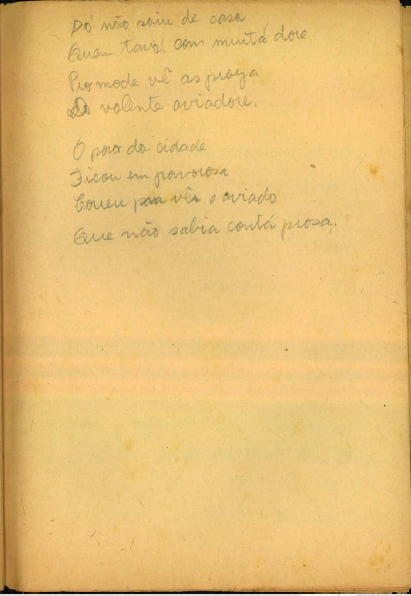 Dó não saiu de casa
Quem tava com muita dore
Pro mode vê as proeza
Do valente aviadore.
O povo da cidade
Ficou em pavorosa
Correu pra vê o aviadô
Que não sabia contá prosa.